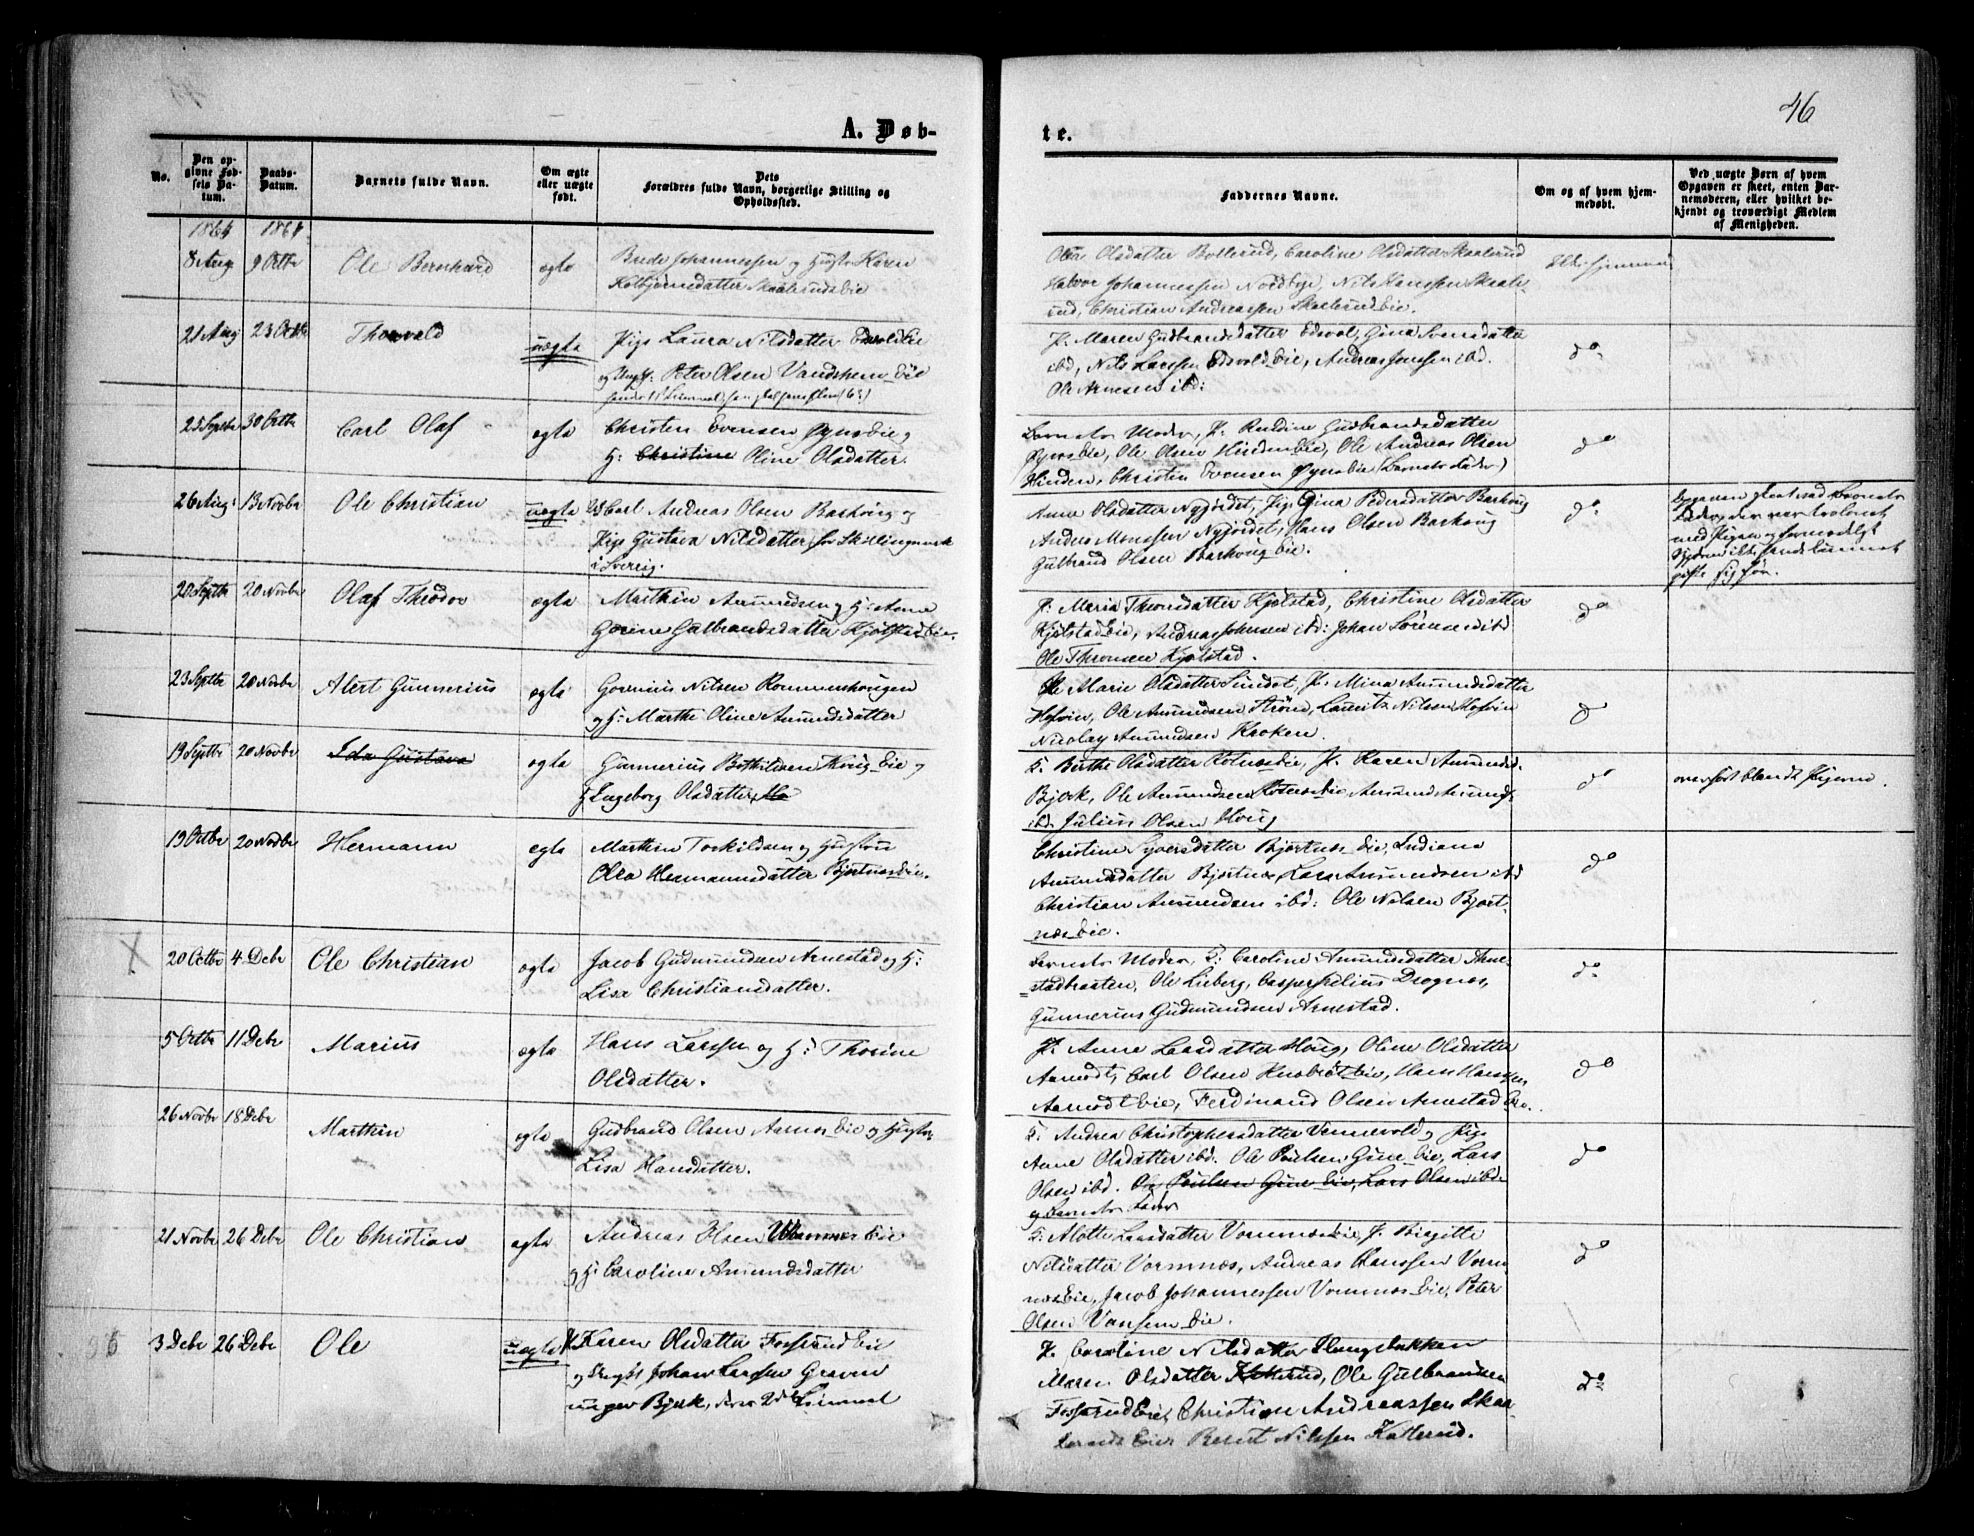 46
A. Døb-
te.
No.
Den op-
givne Fød-
sels Da-
tum.
Daabs-
Datum.
Barnets fulde Navn.
Om ægte
eller uægte
født.
Dets
Forældres fulde Navn, borgerlige Stilling og
Opholdssted.
Faddernes Navne.
Om og af hvem hjem-
medøbt.
Ved uægte Børn af hvem
Opgaven er skeet, enten Bar-
nemoderen, eller hvilket be-
kjendt og troværdigt Medlem
af Menigheden.
1864 1864
8 Aug 9 Octbr Ole Bernhard ægte
Brede Johannessen og Karen
Kolbjørnsdatter Skaalerudeie
Olea Olsdatter Bollerud, Caroline Olsdatter Skaalerud
Halvor Johannessen Nordbye, Nils Hanssen Skaale-
rud, Christian Andreassen Skaalerudeie.
21 Aug 23 Octbr Thorvald uægte
Pige Laura Nilsdatter Edsvold Eie
og Ungk: Peter Olsen Vandshem Eie
P. Maren Gudbrandsdatter Edsvol, Gina Svensdatter
ibd, Nils Larssen Edsvold Eie, Andreas Jonssen ibd.
Ole Arnesen ibd:
do
25 Septbr 30 Octbr Carl Olaf ægte
Christen Evensen Øynseie og
H: Christine Oline Olsdatter.
Barnets Moder, P. Gudbrandsdatter
Ole Olsen Hindeneie, Ole Andreas Olsen
Hinden, Christen Evensen Øynseie (Barnets Fader)
do
26 Aug: 13 Novbr Ole Christian uægte
Carl Andreas Olsen Barhoug og
Pige Gustava Nilsdatter
i Sverrig.
Anne Olsdatter Nygjordet, Pige Gina Pedersdatter Barhoug
Andreas Monssen Nygjordet, Hans Olsen Barhoug
Gulbrand Olsen Barhoug Eie.
do
Opgaven skeet ved Barnets
Fader, der var trolovet
med Pigen og
gifte sig før.
20 Septbr 20 Novbr Olaf Theodor ægte
Marthin Amundsen og H: Anne
Gorine Gulbrandsdatter Kjølstadeie.
P. Maria Thronsdatter Kjølstad, Christine Olsdatter
Kjølstadeie, Andreas Johnsen ibd: Johan Sørensen ibd
Ole Thronsen Kjølstad.
do
23 Septbr 20 Novbr Alert Gunnerius ægte
Gorinius Nilsen Rommenhougen
og H: Marthe Oline Amundsdatter
Marie Olsdatter Sundet, P. Mina Amundsdatter
Hofvin, Ole Amundsen Strøm, Lauritz Nilsen Hofvin
Nicolay Amundsen Kroken.
do
19 Septbr 20 Novbr Ida Gustava ægte
Gunnerius Bothilsen Houg Eie og
H Ingeborg Olsdatter
K. Berthe Olsdatter Rotneseie, P. Karen Amundsd.
Bjørk, Ole Amundsen Rotneseie Amund Amunds.
ibd. Julius Olsen Houg
do
overført blandt Pigerne.
19 Octbr 20 Novbr Hermann ægte
Marthin Torkildsen og Hustru
Olea Hermannsdatter Bjertneseie.
Christine Syversdatter Bjertnes Eie, Indiana
Amundsdatter Bjertnes, Lars Amundsen ibd
Christian Amundsen ibd: Ole Nilsen Bjert-
neseie.
do
X 20 Octbr 4 Debr Ole Christian ægte
Jacob Gudmundsen Arnestad og H:
Lisa Christiansdatter.
Barnets Moder, K: Caroline Amundsdatter Arne-
stadbraaten, Ole Lieberg, Casper Julius Drognes,
Gunnerius Gudmundsen Arnestad.
do
5 Octbr 11 Debr Marius ægte
Hans Larssen og H: Thorine
Olsdatter.
P. Anne Larsdatter Houg, Oline Olsdatter
Aamodt, Carl Olsen Eie, Hans Hanssen
Aamodt Eie, Ferdinand Olsen Arnestad Bro.
do
26 Novbr 18 Debr Marthin ægte
Gudbrand Olsen Aarnes Eie og Hustru
Lisa Hansdatter.
K: Andrea Christophersdatter Vennevold og Pige
Anne Olsdatter ibd. Ole Poulsen Gine Eie, Lars
Olsen ibd. Ole Poulsen Gine Eie, Lars Olsen ibd
og Barnets Fader
do
21 Novbr 26 Debr Ole Christian ægte
Andreas Olsen Eie
og H: Caroline Amundsdatter
K: Alotte Larsdatter Vormnæseie, P. Birgitte
Nilsdatter Vormnæs, Andreas Hanssen Vorm-
næseie, Jacob Johannessen Vormnæs Eie, Peter
Olsen Eie.
do
96 3 Debr 26 Debr Ole uægte
Karen Olsdatter Fosserud Eie
og Ungk: Johan Larssen Graven
Bjerke, deres 2det Leiermaal
P. Caroline Nilsdatter Haugsbakken
Maren Olsdatter Ole Gulbrandsen
Fosserud Eie, Christian Andreassen Skaa-
leruds Eie Bernt Nilssen Katterud.
do